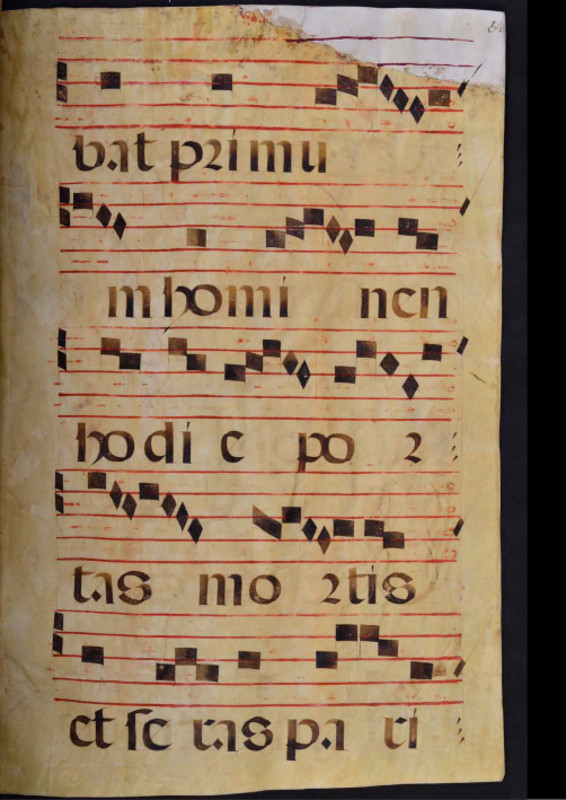 bat primu
mhomi nen
hodi e po r
tas mo rtis
et se ras pa ri